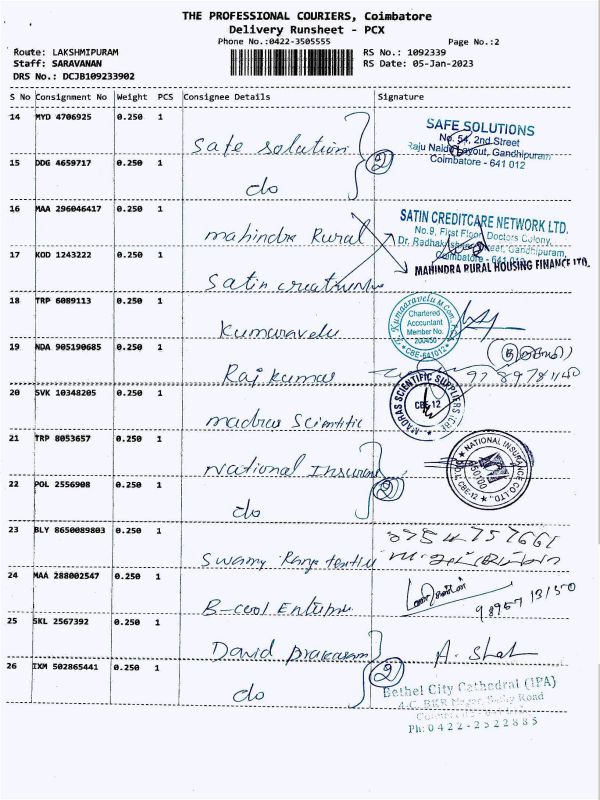 THE PROFESSIONAL COURIERS, Coimbatore
Delivery Runsheet - PCX
Phone No.:0422-3505555
Page No.:2
Route: LAKSHMIPURAM
RS No.: 1092339
Staff: SARAVANAN
RS Date: 05-Jan-2023
DRS No.: DCJB109233902
S No Consignment No Weight PCS Consignee Details Signature
14 MYD 4706925 0.250 1
Safe solution
SAFE SOLUTIONS
No. 54, 2nd Street
Raju Naidu Layout, Gandhipuram
Coimbatore - 641 012
15 DDG 4659717 0.250 1
do
2
16 MAA 296046417 0.250 1
mahindra Rural
SATIN CREDITCARE NETWORK LTD.
No.9, First Floor, Doctors Colony,
Dr. Radhakrishnan Street, Gandhipuram,
Coimbatore - 641 012
17 KOD 1243222 0.250 1
Satin
MAHINDRA RURAL HOUSING FINANCE LTD.
18 TRP 6089113 0.250 1
Kumaravelu
Kumaaravelu M.Com
Chartered
Accountant
Member No.
200450
CBE-641012
19 NDA 905190685 0.250 1
Raj kumar
20 SVK 10348205 0.250 1
madras Scientific
MADRAS SCIENTIFIC SUPPLIERS (CBE)
CBE-12
21 TRP 8053657 0.250 1
National
NATIONAL INSURANCE CO LTD.
D.O. IV, CBE-12
22 POL 2556908 0.250 1
do
2
23 BLY 8650089803 0.250 1
Swamy
24 MAA 288002547 0.250 1
B-cool
25 SKL 2567392 0.250 1
David prakasam
26 IXM 502865441 0.250 1
do
2
Bethel City Cathedral (IPA)
4-C, BKR Nagar, Sathy Road
Ph: 0422-2522885